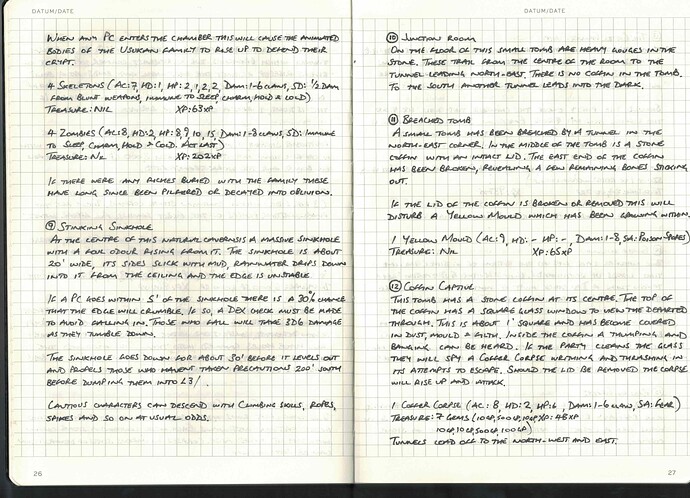 DATUM/DATE
WHEN ANY PC ENTERS THE CHAMBER THIS WILL CAUSE THE ANIMATED
BODIES OF THE USUKAN FAMILY TO RISE UP TO DEFEND THEIR
CRYPT.
4 SKELETONS (AC:7, HD:1, HP:2,1,2,2, DAM:1-6 CLAWS, SD: 1/2 DAM
FROM BLUNT WEAPONS, IMMUNE TO SLEEP, CHARM, HOLD & COLD)
TREASURE: NIL XP:63XP
4 ZOMBIES (AC:8, HD:2, HP:8,9,10,15, DAM:1-8 CLAWS, SD: IMMUNE
TO SLEEP, CHARM, HOLD & COLD. ACT LAST)
TREASURE: NIL XP:202XP
IF THERE WERE ANY RICHES BURIED WITH THE FAMILY THESE
HAVE LONG SINCE BEEN PILFERED OR DECAYED INTO OBLIVION.
9 STINKING SINKHOLE
AT THE CENTRE OF THIS NATURAL CAVERN IS A MASSIVE SINKHOLE
WITH A FOUL ODOUR RISING FROM IT. THE SINKHOLE IS ABOUT
20' WIDE, ITS SIDES SLICK WITH MUD, RAINWATER DRIPS DOWN
INTO IT FROM THE CEILING AND THE EDGE IS UNSTABLE.
IF A PC GOES WITHIN 5' OF THE SINKHOLE THERE IS A 30% CHANCE
THAT THE EDGE WILL CRUMBLE. IF SO, A DEX CHECK MUST BE MADE
TO AVOID FALLING IN. THOSE WHO FALL WILL TAKE 3D6 DAMAGE
AS THEY TUMBLE DOWN.
THE SINKHOLE GOES DOWN FOR ABOUT 50' BEFORE IT LEVELS OUT
AND PROPELS THOSE WHO HAVEN'T TAKEN PRECAUTIONS 200' SOUTH
BEFORE DUMPING THEM INTO L3/ .
CAUTIOUS CHARACTERS CAN DESCEND WITH CLIMBING SKILLS, ROPES,
SPIKES AND SO ON AT USUAL ODDS.
26
DATUM/DATE
10 JUNCTION ROOM
ON THE FLOOR OF THIS SMALL TOMB ARE HEAVY GOUGES IN THE
STONE. THESE TRAIL FROM THE CENTRE OF THE ROOM TO THE
TUNNEL LEADING NORTH-EAST. THERE IS NO COFFIN IN THE TOMB.
TO THE SOUTH ANOTHER TUNNEL LEADS INTO THE DARK.
11 BREACHED TOMB
A SMALL TOMB HAS BEEN BREACHED BY A TUNNEL IN THE
NORTH-EAST CORNER. IN THE MIDDLE OF THE TOMB IS A STONE
COFFIN WITH AN INTACT LID. THE EAST END OF THE COFFIN
HAS BEEN BROKEN, REVEALING A FEW REMAINING BONES STICKING
OUT.
IF THE LID OF THE COFFIN IS BROKEN OR REMOVED THIS WILL
DISTURB A YELLOW MOULD WHICH HAS BEEN GROWING WITHIN.
1 YELLOW MOULD (AC:9, HD:- HP:-, DAM:1-8, SA: POISON SPORES)
TREASURE: NIL XP:65XP
12 COFFIN CAPTIVE
THIS TOMB HAS A STONE COFFIN AT ITS CENTRE. THE TOP OF
THE COFFIN HAS A SQUARE GLASS WINDOW TO VIEW THE DEPARTED
THROUGH. THIS IS ABOUT 1' SQUARE AND HAS BECOME COVERED
IN DUST, MOULD & FILTH. INSIDE THE COFFIN A THUMPING AND
BANGING CAN BE HEARD. IF THE PARTY CLEANS THE GLASS
THEY WILL SPY A COFFER CORPSE WRITHING AND THRASHING IN
ITS ATTEMPTS TO ESCAPE. SHOULD THE LID BE REMOVED THE CORPSE
WILL RISE UP AND ATTACK.
1 COFFER CORPSE (AC:8, HD:2, HP:6, DAM:1-6 CLAW, SA: FEAR)
TREASURE: 7 GEMS (10GP,500GP,10GP, XP:48XP
10GP,10GP,500GP,100GP)
TUNNELS LEAD OFF TO THE NORTH-WEST AND EAST.
27